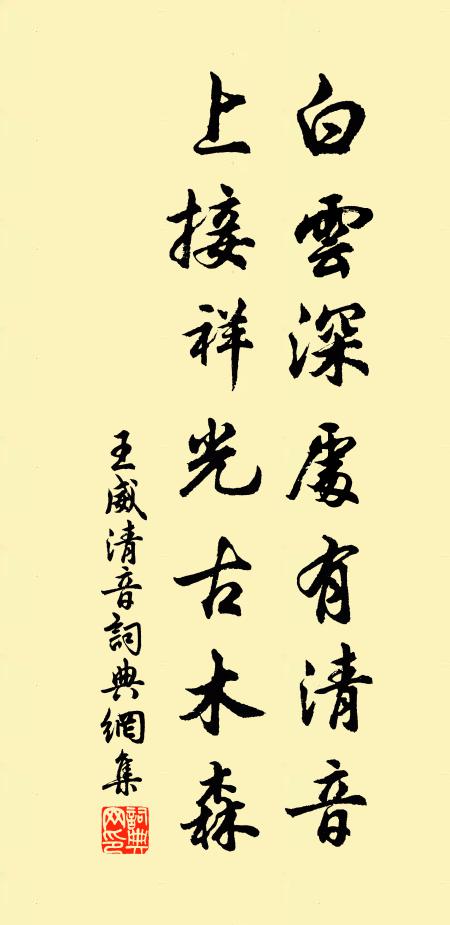 白雲深處有清音
上接祥光古木森
王威清音詞典網集
詞典网印